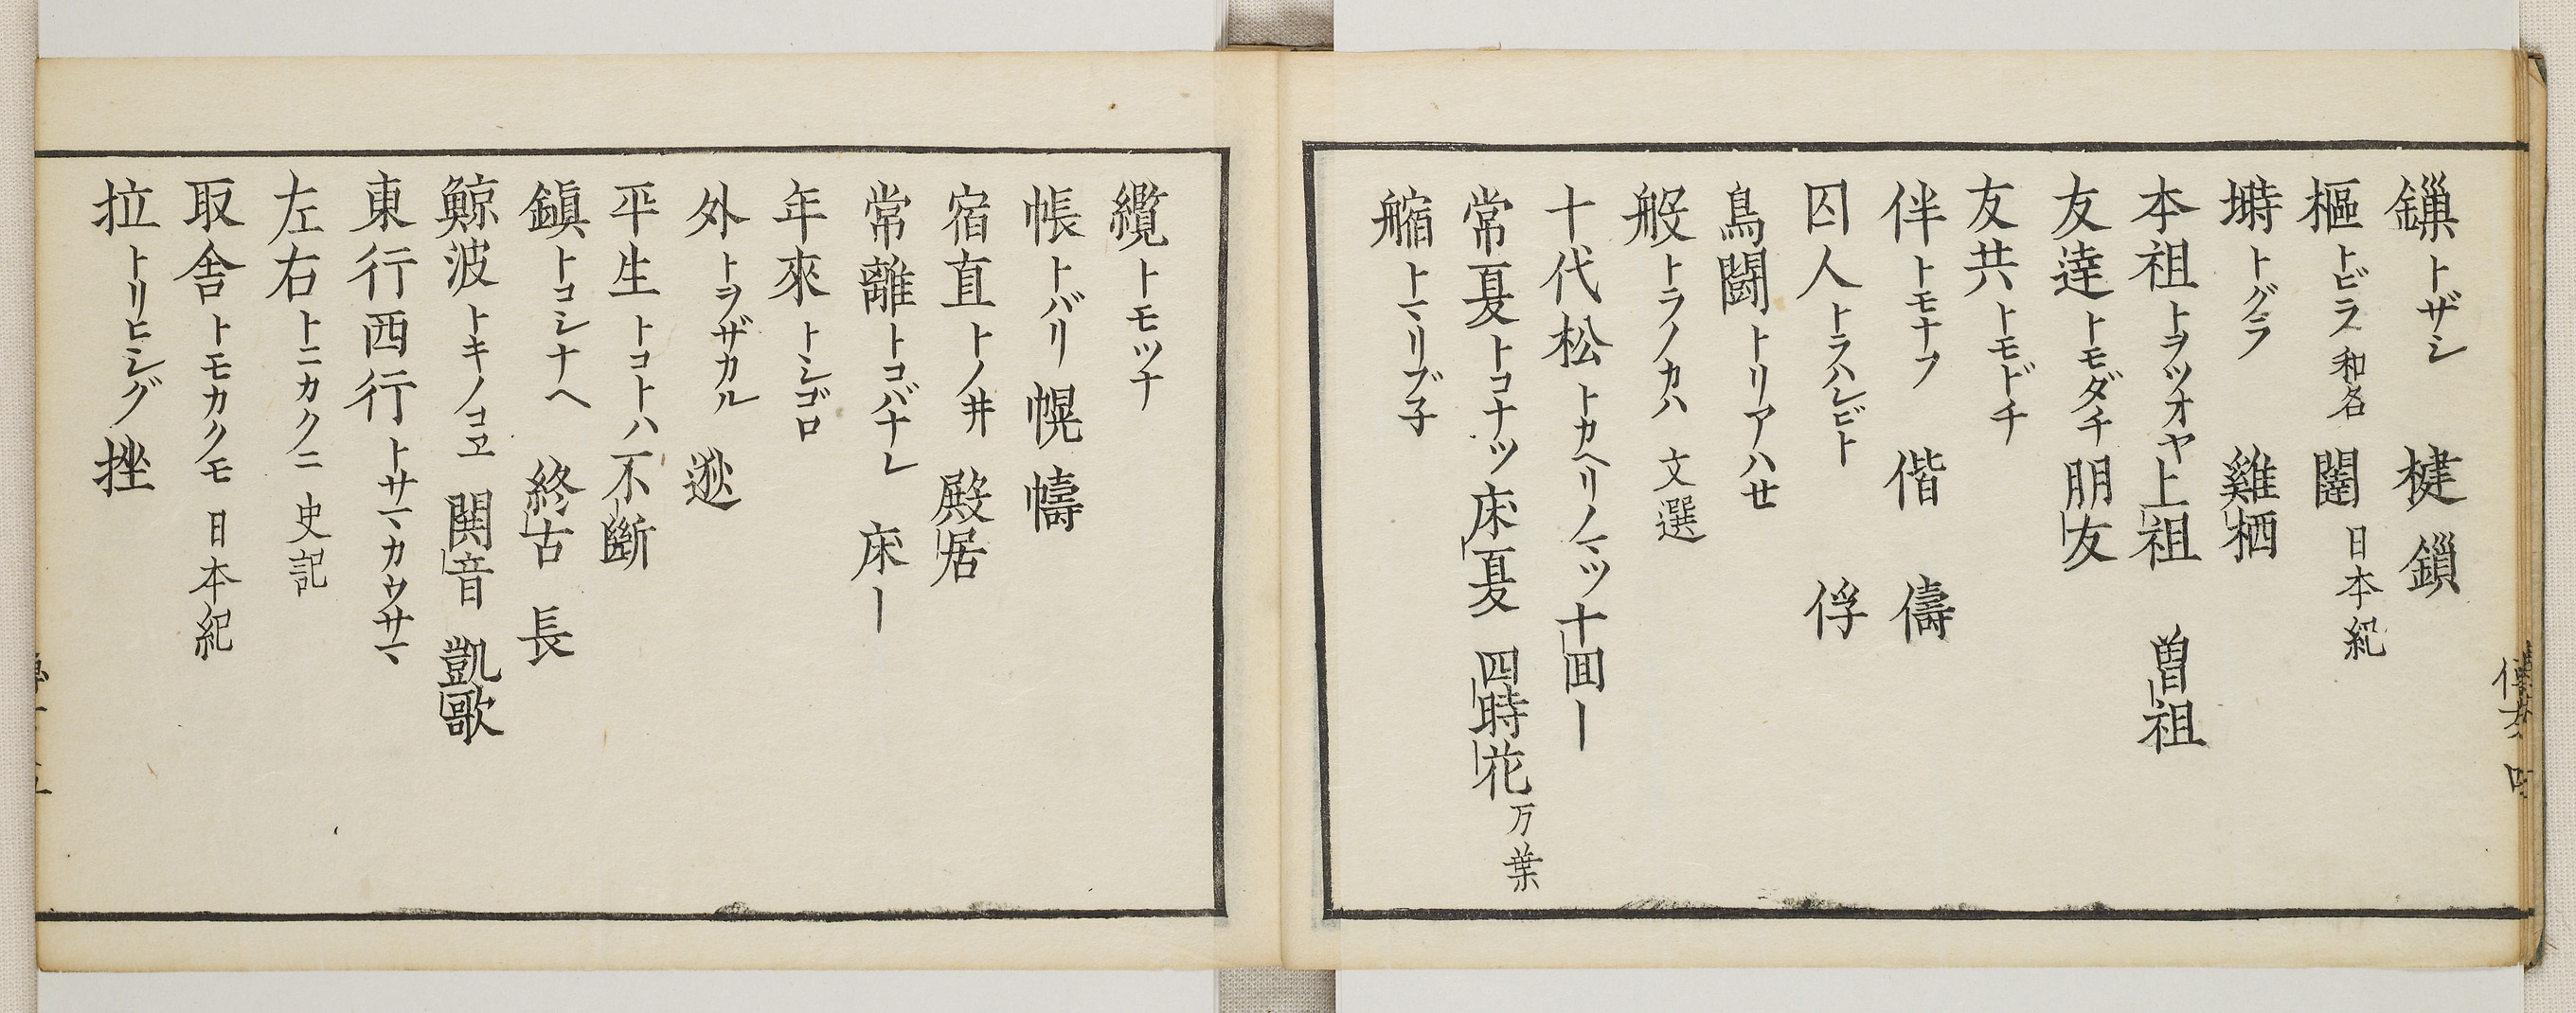 鏁トザシ 楗 鎻
樞トビラ 和名 闥 日本紀
塒トグラ 雞栖
本祖トヲツオヤ 上祖 曽祖
友達トモダチ 朋友
友共トモドチ
伴トモナフ 偕 儔
囚人トラハレビト 俘
鳥闘トリアハセ
般トラノカハ 文選
十代松トカヘリノマツ 十囬ー
常夏トコナツ 床夏 四時花 万葉
艍トマリブ子
纜トモツナ
帳トバリ 幌 幬
宿直トノ井 殿居
常離トコバナレ 床ー
年來トシゴロ
外トヲザカル 逖
平生トコトハ 不斷
鎭トコシナヘ 終古 長
鯨波トキノコヱ 鬨音 凱歌
東行西行トサマカウサマ
左右トニカクニ 史記
取舎トモカクモ 日本紀
拉トリヒシグ 挫